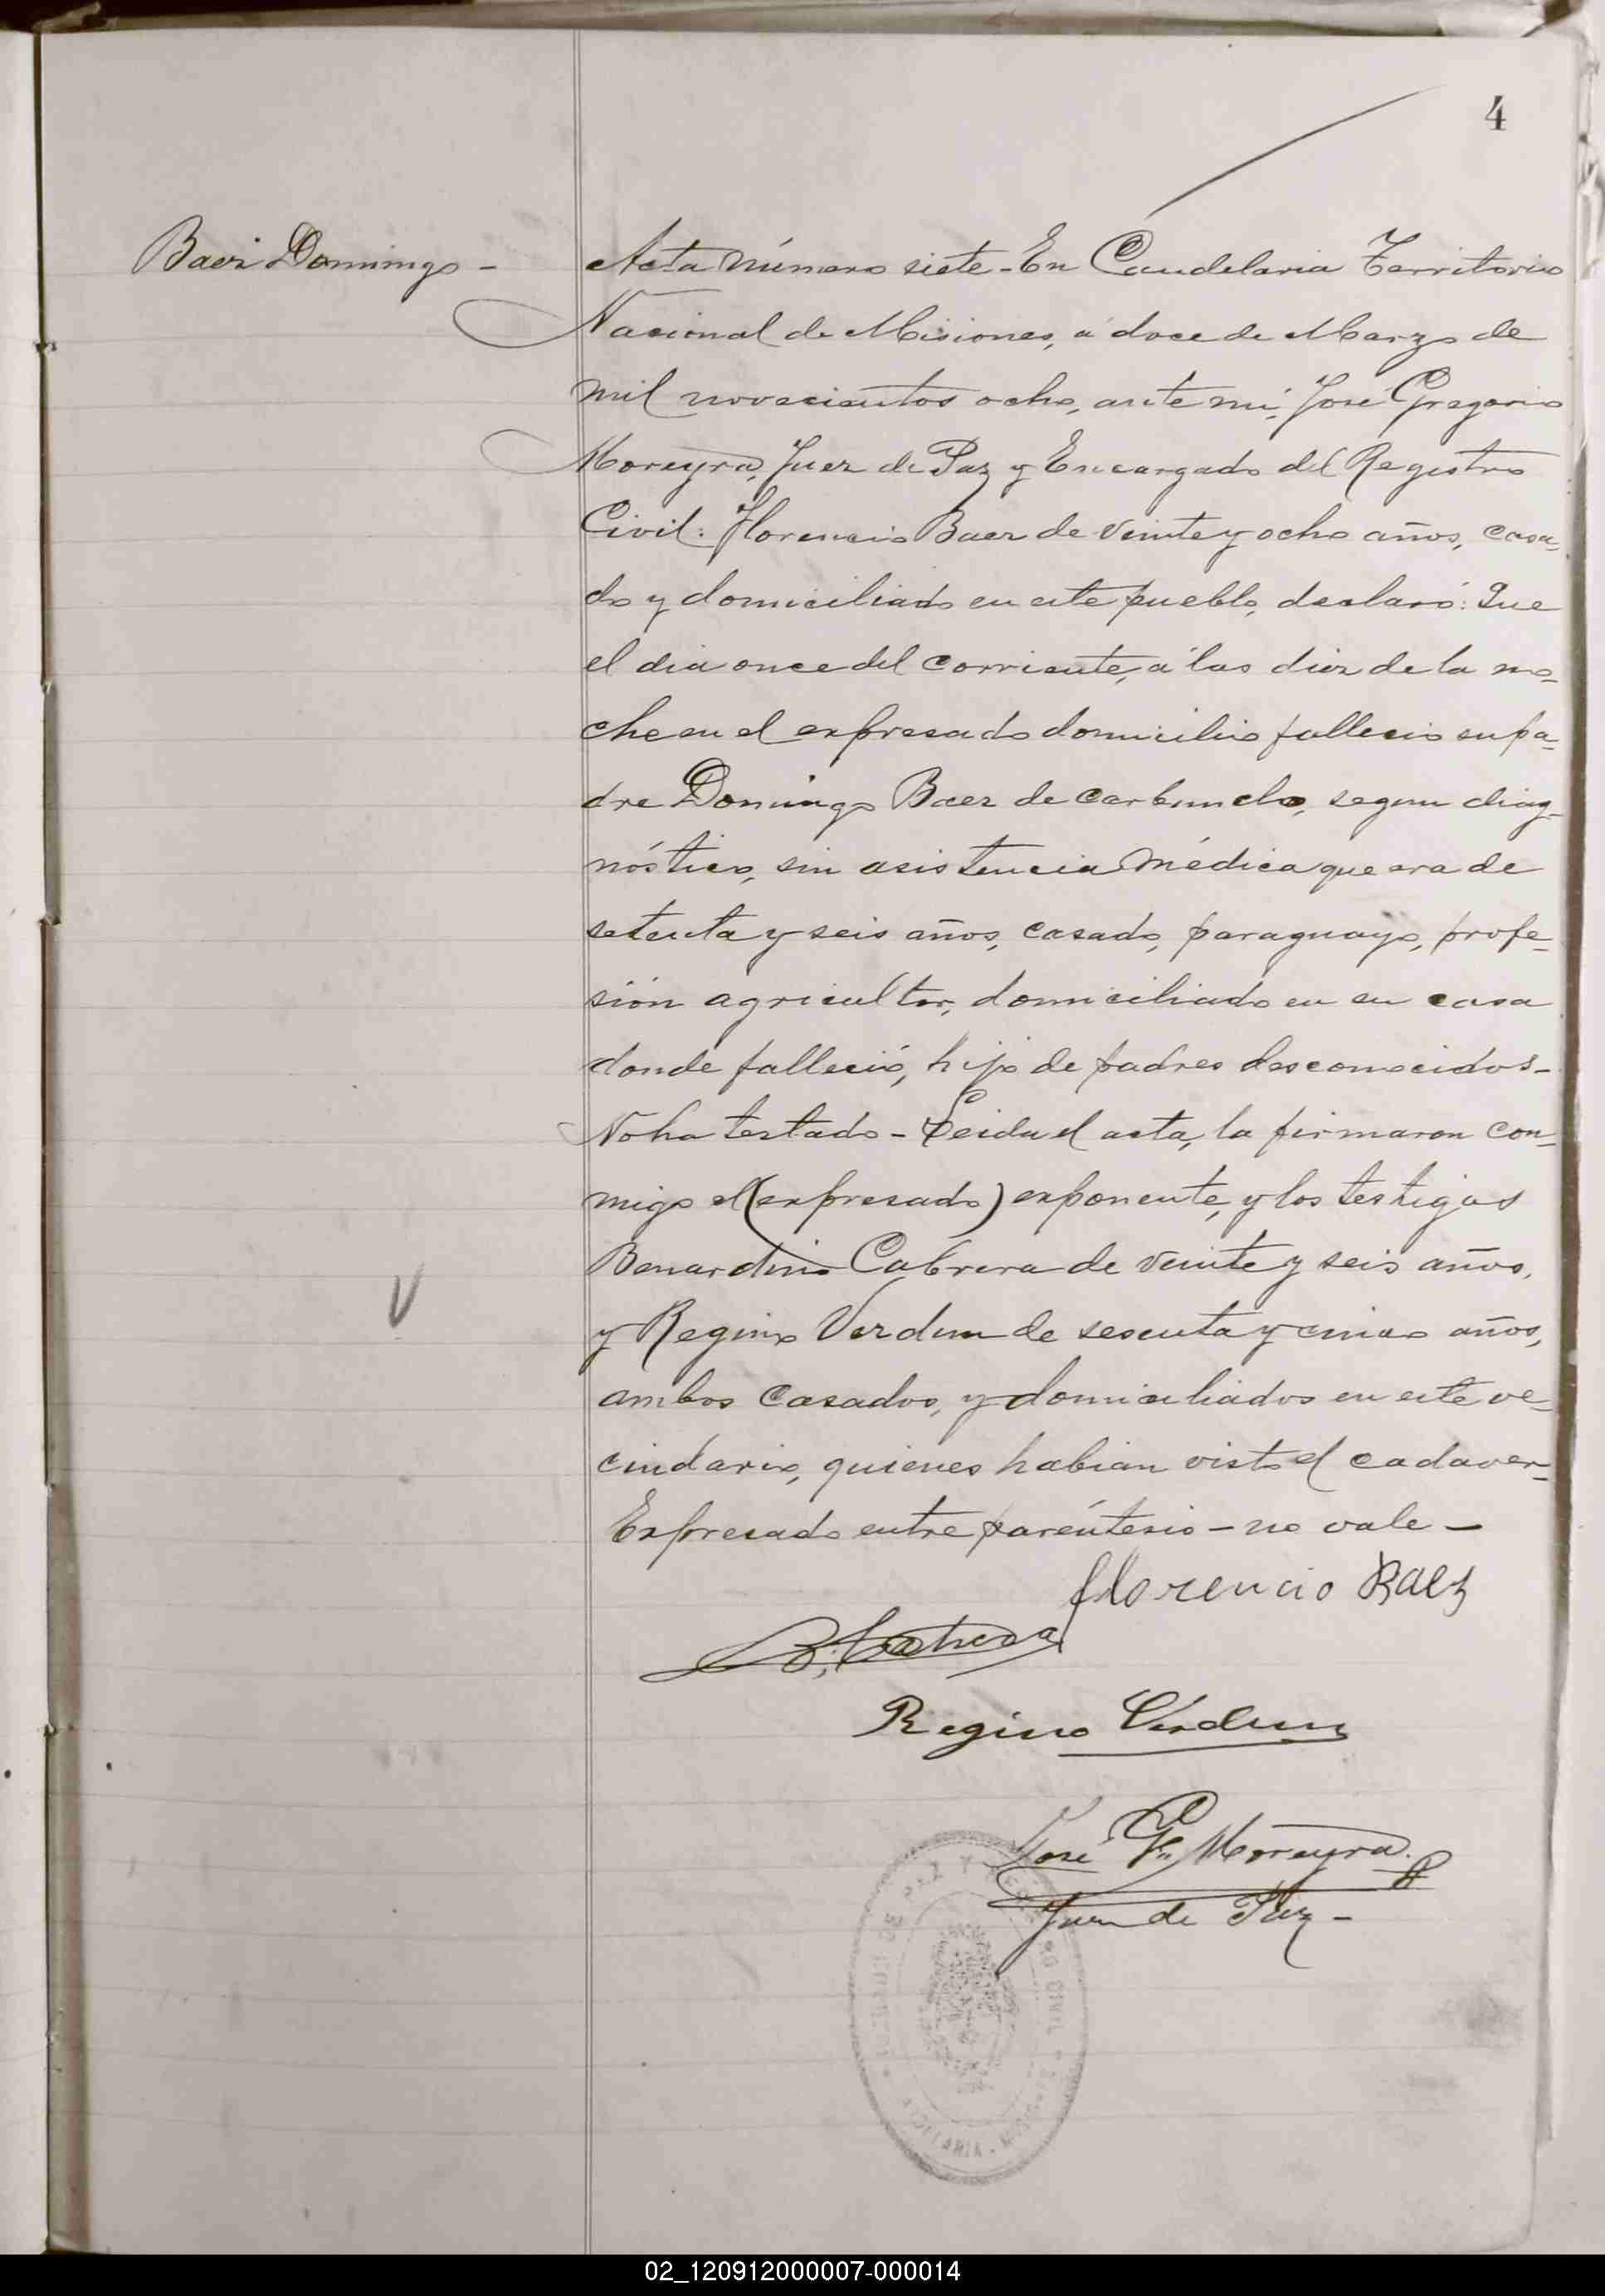 4
Baez Domingo -
Acta número siete - En Candelaria Territorio
Nacional de Misiones, á doce de Marzo de
mil novecientos ocho, ante mí, José Gregorio
Moreyra, Juez de Paz y Encargado del Registro
Civil: Florencio Baez de veinte y ocho años, casa-
do y domiciliado en este pueblo, declaró: Que
el dia once del corriente, á las diez de la no-
che en el expresado domicilio fallecio su pa-
dre Domingo Baez de carbunclo, segun diag-
nóstico, sin asistencia médica que era de
setenta y seis años, casado, paraguayo, profe-
sión agricultor, domiciliado en su casa
donde falleció, hijo de padres desconocidos -
No ha testado - Leida el acta, la firmaron con-
migo el (expresado) exponente, y los testigos
Benardino Cabrera de veinte y seis años,
y Regino Verdun de sesenta y cinco años,
ambos casados, y domiciliados en este ve-
cindario, quienes habian visto el cadaver-
Expresado entre paréntesis - no vale -
florencio Baez
B. Cabrera
Regino Verdun
José G. Moreyra.
Juez de Paz -
02_120912000007-000014